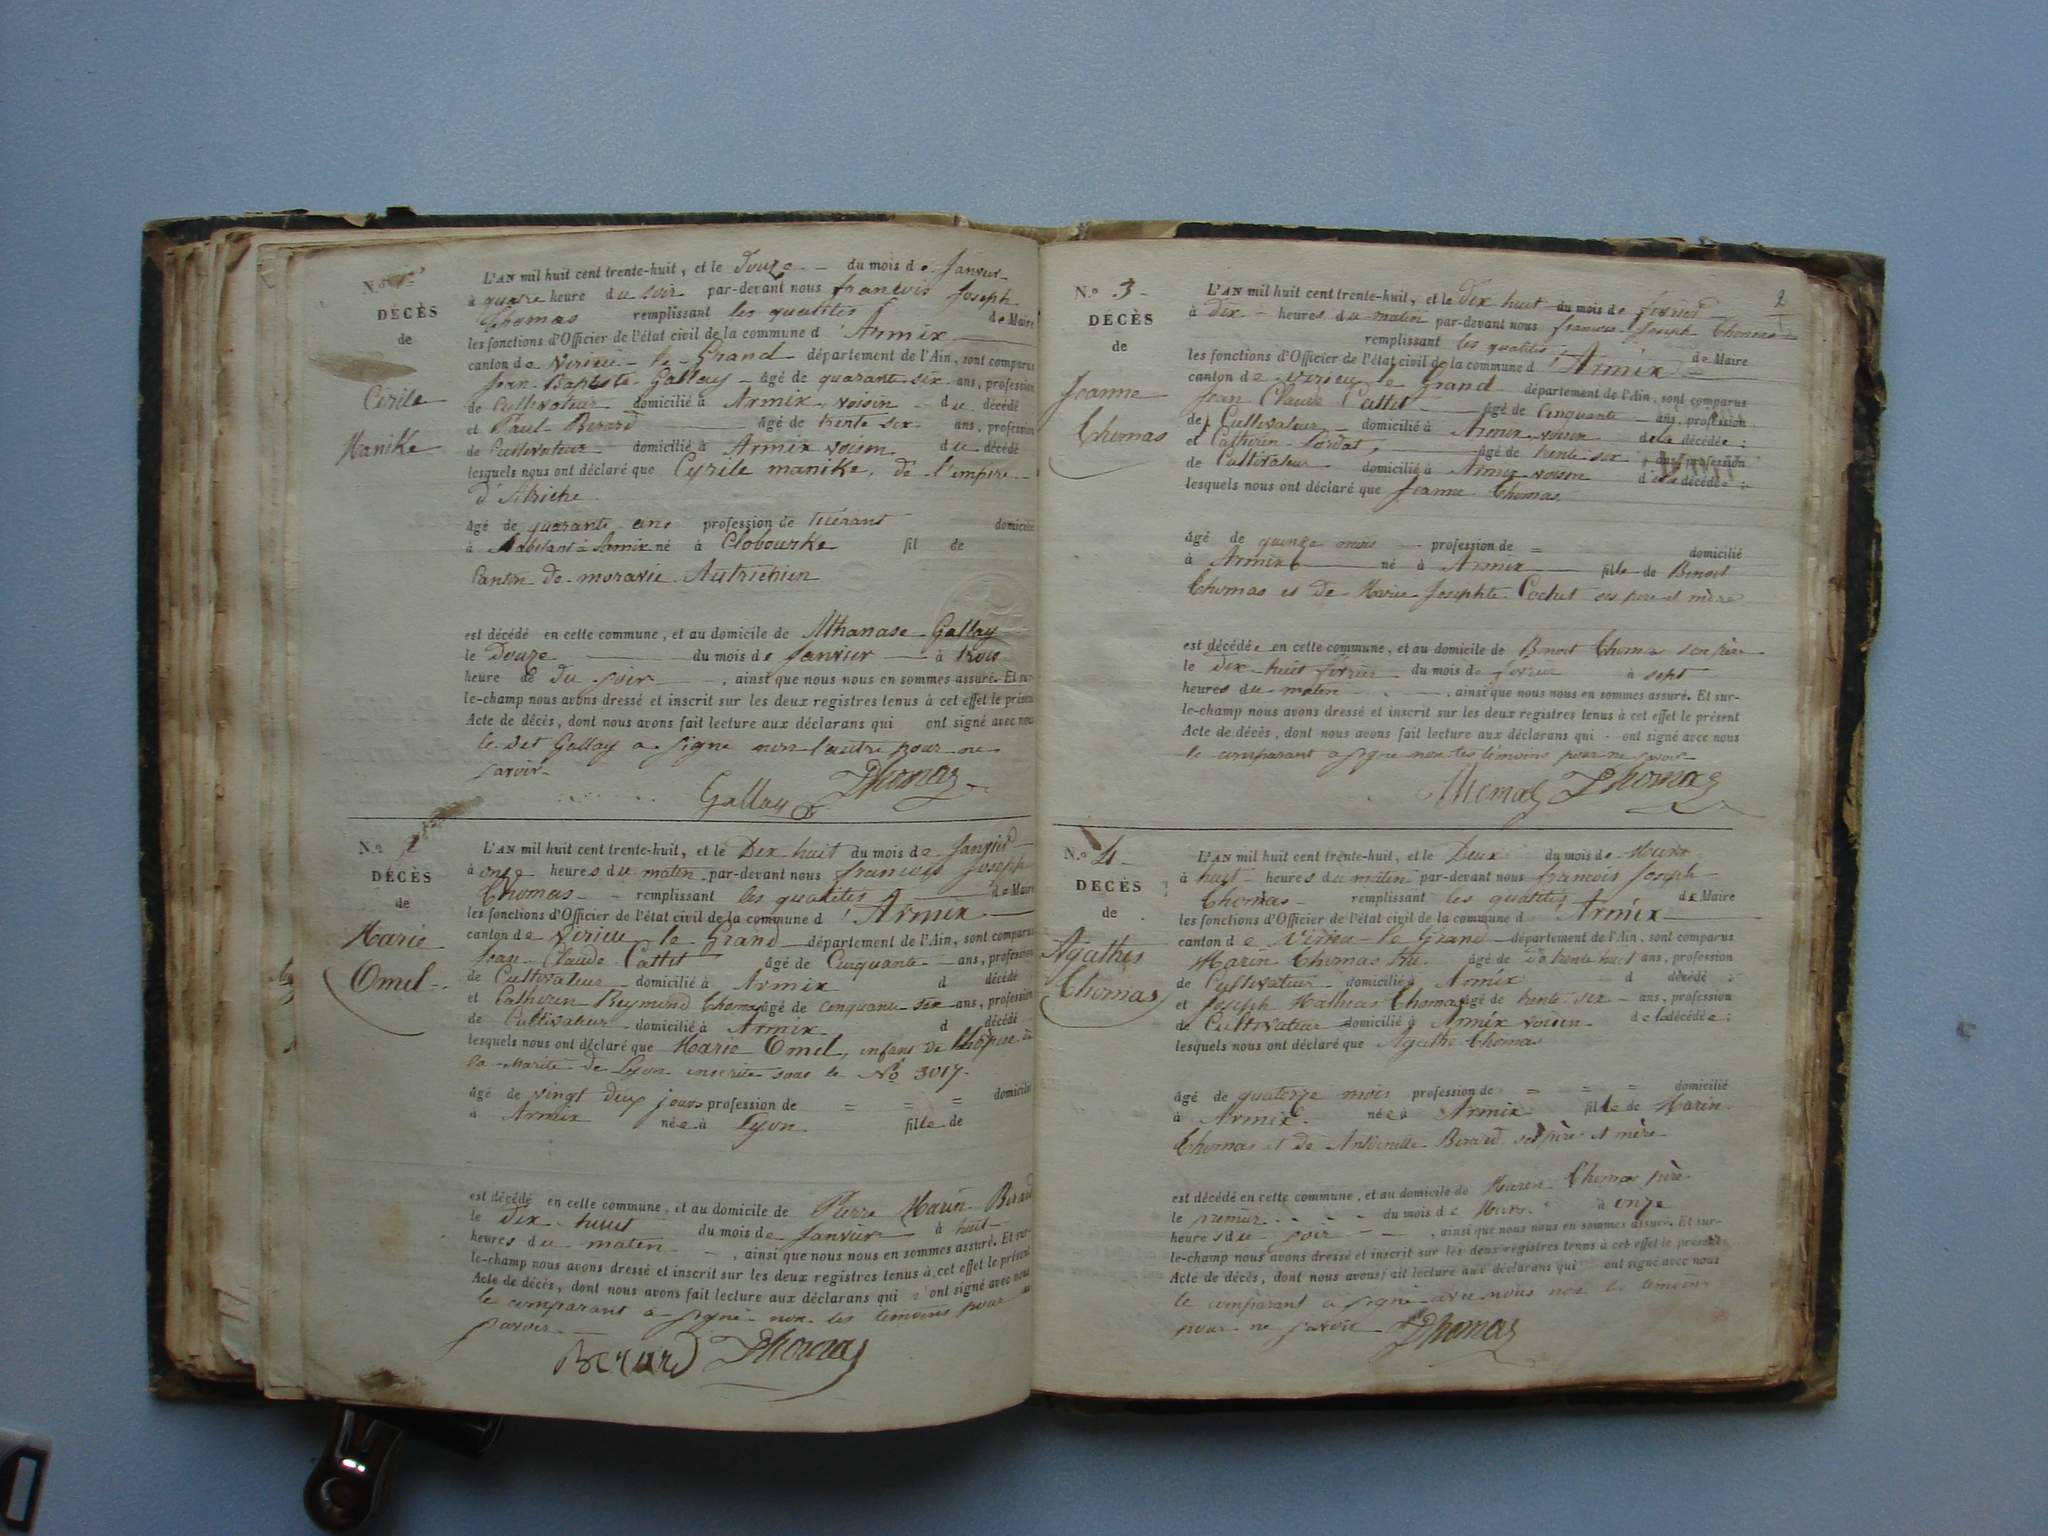 N.o 1
DÉCÈS
de
Cirile
Manike
L'AN mil huit cent trente-huit, et le Douze du mois de Janvier
à quatre heure du soir par-devant nous francois Joseph
Thomas remplissant les qualités de Maire
les fonctions d'Officier de l'état civil de la commune d'Armix
canton de Virieu-le-Grand département de l'Ain, sont comparus
Jean Baptiste Gallay âgé de quarante six ans, profession
de Cultivateur domicilié à Armix voisin du décédé
et Paul Berard âgé de trente six ans, profession
de Cultivateur domicilié à Armix voisin du décédé
lesquels nous ont déclaré que Cyrile manike, de l'empire
d'Atriche
âgé de quarante ans profession de domicilié
à habitant à Armix né à Clobourke fil de
Canton de moravie Autrichien
est décédé en cette commune, et au domicile de Athanase Gallay
le Douze du mois de Janvier à trois
heure de du soir, ainsi que nous nous en sommes assuré. Et sur-
le-champ nous avons dressé et inscrit sur les deux registres tenus à cet effet le présent
Acte de décès, dont nous avons fait lecture aux déclarans qui ont signé avec nous
le dit Gallay a signe non l'autre pour ne
savoir
Gallay Thomas
N.o 2
DÉCÈS
de
Marie
Omel
L'AN mil huit cent trente-huit, et le Dix huit du mois de Janvier
à onze heures du matin par-devant nous francois Joseph
Thomas remplissant les qualités de Maire
les fonctions d'Officier de l'état civil de la commune d'Armix
canton de Virieu le Grand département de l'Ain, sont comparus
Jean Claude Cattit âgé de Cinquante ans, profession
de Cultivateur domicilié à Armix d décédé
et Catherin Reymond Thomas âgé de cinquante six ans, profession
de Cultivateur domicilié à Armix d décédé
lesquels nous ont déclaré que Marie Omel, enfant de
la de Lyon inscrite sous le No 3017
âgé de vingt deux jours profession de = = = domicilié
à Armix née à Lyon fille de
est décédé en cette commune, et au domicile de Pierre Marin Berard
le dix huit du mois de Janvier à huit
heures du matin, ainsi que nous nous en sommes assuré. Et sur-
le-champ nous avons dressé et inscrit sur les deux registres tenus à cet effet le présent
Acte de décès, dont nous avons fait lecture aux déclarans qui ont signé avec nous
le comparant a signé non les temoins pour ne
savoir
Berard Thomas
2
N.o 3
DÉCÈS
de
Jeanne
Thomas
L'AN mil huit cent trente-huit, et le Dix huit du mois de fevrier
à Dix heures du matin par-devant nous francois Joseph Thomas
remplissant les qualités de Maire
les fonctions d'Officier de l'état civil de la commune d'Armix
canton de virieu le Grand département de l'Ain, sont comparus
Jean Claude Cattit âgé de Cinquante ans, profession
de Cultivateur domicilié à Armix voisin de la décédée;
et Catherin âgé de trente six ans, profession
de Cultivateur domicilié à Armix voisin de la décédée;
lesquels nous ont déclaré que Jeanne Thomas
âgé de quinze mois profession de = domicilié
à Armix né à Armix fille de Benoit
Thomas et de Marie Josephte Cochet ses père et mère
est décédée en cette commune, et au domicile de Benoit Thomas son père
le dix huit fevrier du mois de fevrier à sept
heures du matin, ainsi que nous nous en sommes assuré. Et sur-
le-champ nous avons dressé et inscrit sur les deux registres tenus à cet effet le présent
Acte de décès, dont nous avons fait lecture aux déclarans qui ont signé avec nous
le comparant a signe non les témoins pour ne savoir
Thomas Thomas
N.o 4
DÉCÈS
de
Agathes
Thomas
L'AN mil huit cent trente-huit, et le Deux du mois de Mars
à huit heures du matin par-devant nous francois Joseph
Thomas remplissant les qualités de Maire
les fonctions d'Officier de l'état civil de la commune d'Armix
canton de Virieu-le Grand département de l'Ain, sont comparus
Marin Thomas âgé de trente huit ans, profession
de Cultivateur domicilié à Armix d décédé;
et Joseph Mathias Thomas âgé de trente six ans, profession
de Cultivateur domicilié à Armix voisin de la décédée;
lesquels nous ont déclaré que Agathe Thomas
âgé de quatorze mois profession de = = = domicilié
à Armix née à Armix fille de Marin
Thomas et de Antoinette Berard ses père et mère
est décédé en cette commune, et au domicile de Marin Thomas père
le premier du mois de Mars à onze
heures du soir, ainsi que nous nous en sommes assuré. Et sur-
le-champ nous avons dressé et inscrit sur les deux registres tenus à cet effet le présent
Acte de décès, dont nous avons fait lecture aux déclarans qui ont signé avec nous
le comparant a signé avec nous non les temoins
pour ne savoir Thomas